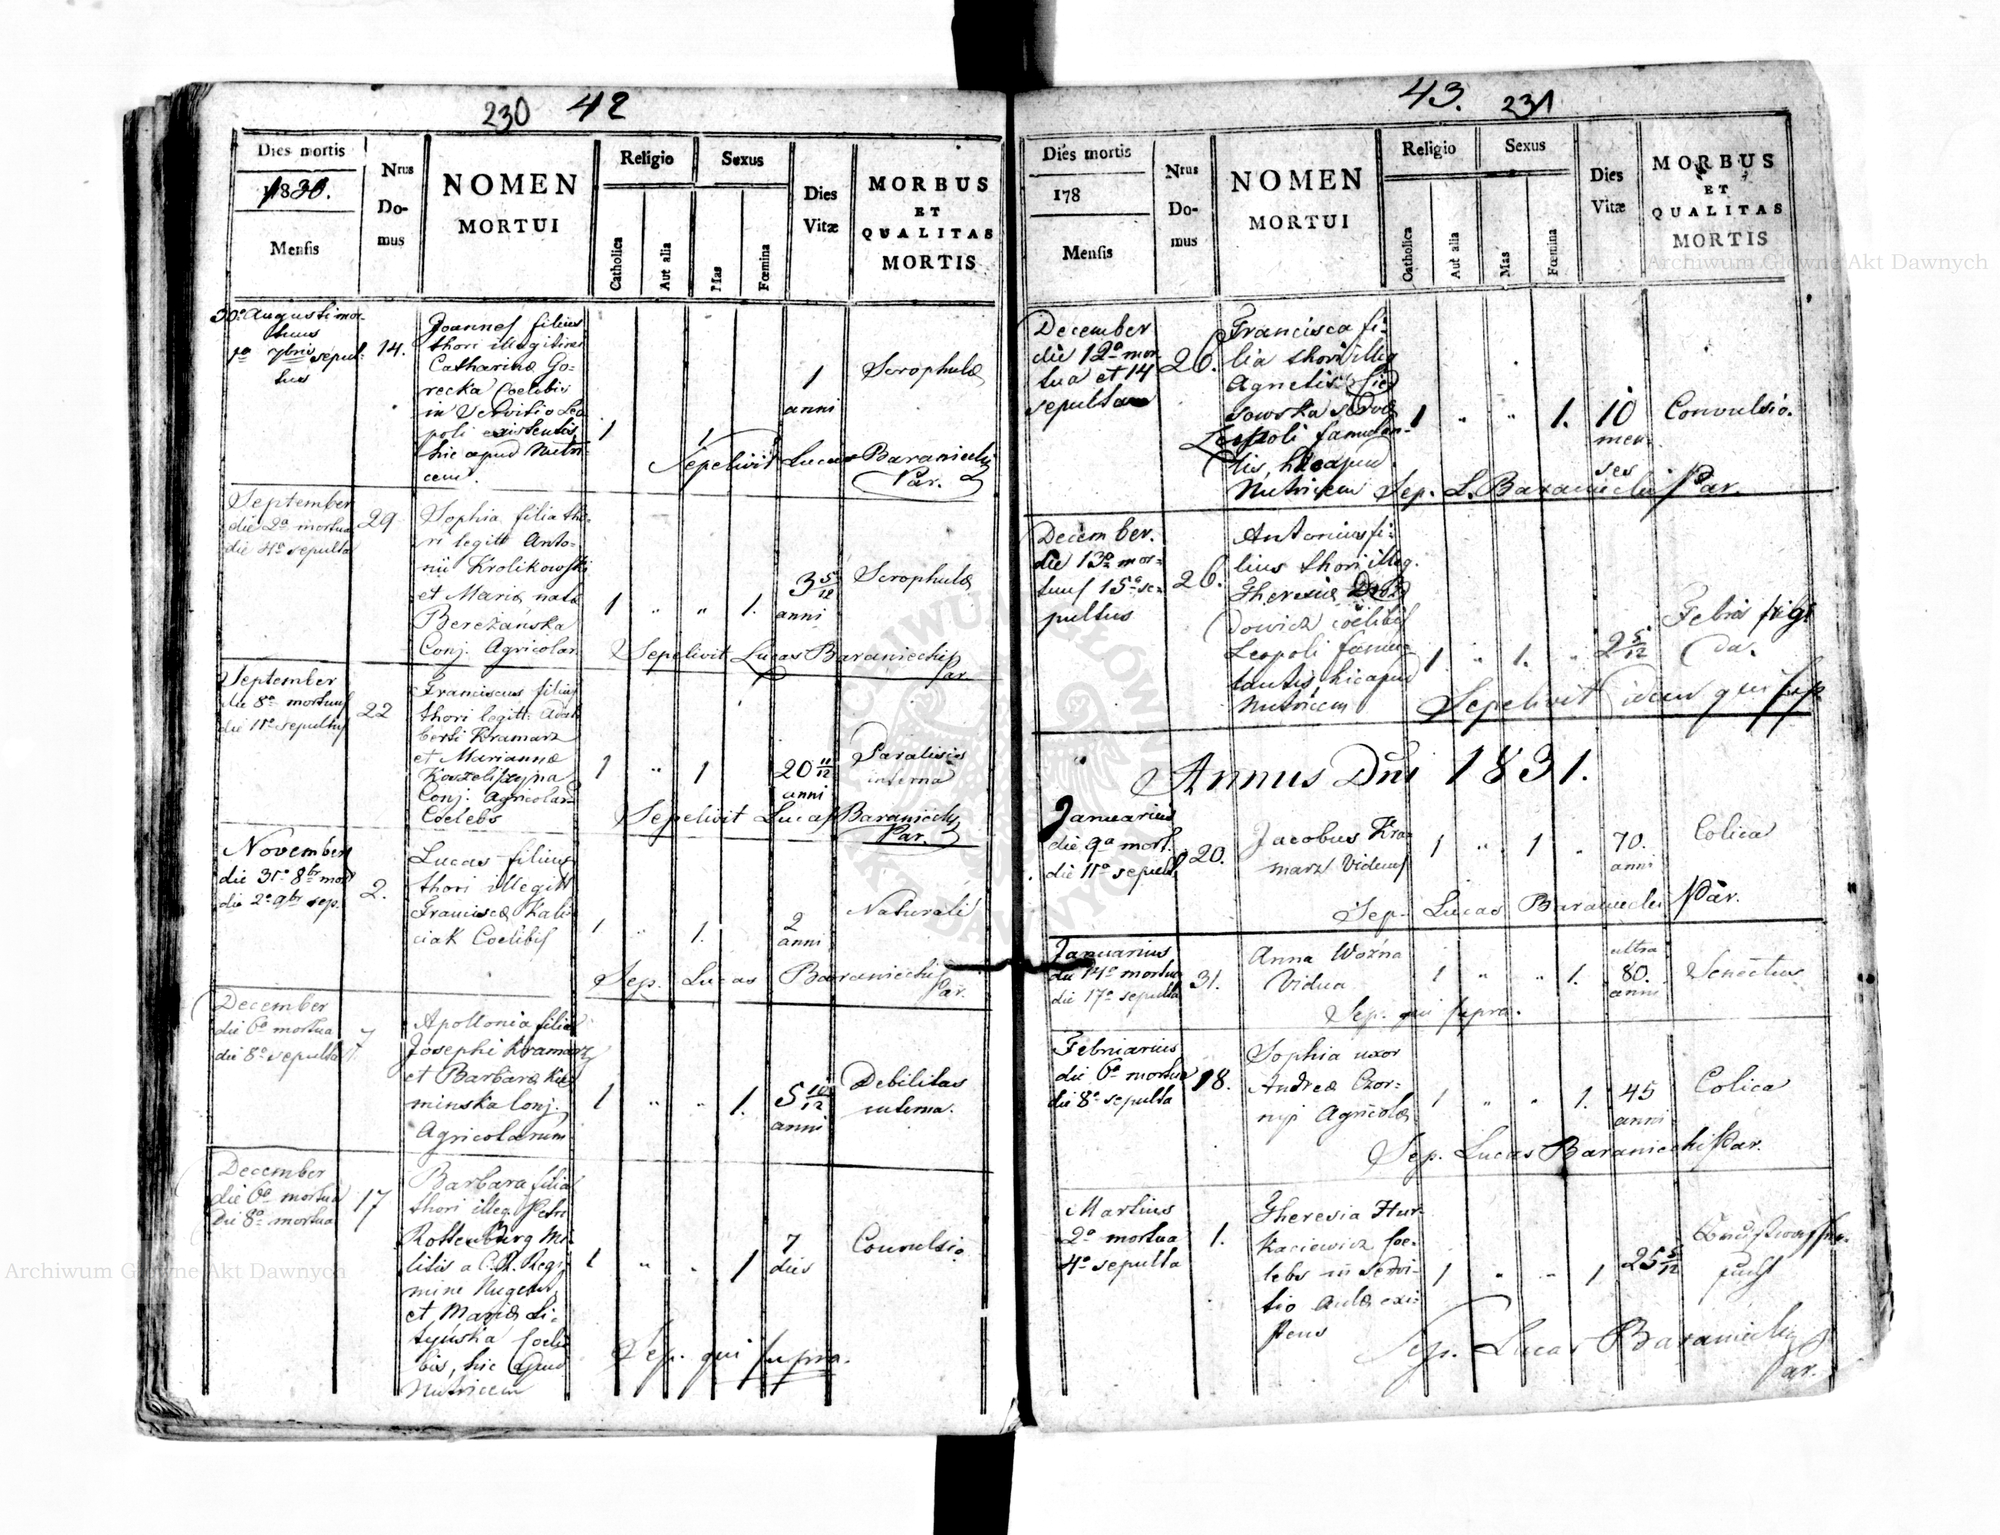 230 42
Dies mortis
1830.
Mensis
Nrus
Do-
mus
NOMEN
MORTUI
Religio
Catholica
Aut alia
Sexus
Mas
Fœmina
Dies
Vitæ
MORBUS
ET
QUALITAS
MORTIS
30a Augusti mor-
tuus
1a 7bris sepul-
tus
14.
Joannes filius
thori illegitimi
Catharinæ Go-
recka Coelibis
in Servitio Leo
poli existentis
hic apud Nutri-
cem.
1
1
1
anni
Scrophulæ
Sepelivit Lucas Baraniecki
Par.
September
die 2a mortua
die 4a sepulta
29
Sophia filia tho-
ri legitt Anto-
nii Krolikowski
et Mariæ nata
Bereżańska
Conj. Agricolar
1 " " 1.
3 5/12
anni
Scrophulæ
Sepelivit Lucas Baraniecki
Par.
September
die 8a mortuus
die 11a sepultus
22
Franciscus filius
thori legitt: Adal
berti Kramarz
et Mariannæ
Conj. Agricolar
Coelebs
1 " 1
20 11/12
anni
Paralisis
interna
Sepelivit Lucas Baraniecki
Par.
November
die 31a 8br mort
die 2a 9br sep.
2.
Lucas filius
thori illegitt
Franciscæ Kali
ciak Coelibis
1 " 1.
2
anni
Naturalis
Sep. Lucas Baraniecki
Par.
December
die 6a mortua
die 8a sepulta
7
Apollonia filia
Josephi Kramarz
et Barbaræ Kie
minska Conj.
Agricolarum
1 " " 1.
5 10/12
anni
Debilitas
interna.
December
die 6a mortua
die 8a mortua
17
Barbara filia
thori illeg. Petri
Rottenburg Mi-
litis a C. R. Regi
mine Nugent,
et Mariæ Li-
tyńska Coeli
bis, hic apud
Nutricem
1 " " 1
7
dies
Convulsio
Sep. qui supra.
43. 231
Dies mortis
178
Mensis
Nrus
Do-
mus
NOMEN
MORTUI
Religio
Catholica
Aut alia
Sexus
Mas
Fœmina
Dies
Vitæ
MORBUS
ET
QUALITAS
MORTIS
December
die 12a mor
tua et 14
sepulta
26.
Francisca fi-
lia thori illeg
Agnetis
sowska
Leopoli famulan-
tis, hic apud
Nutricem
1 " " 1.
10
men
ses
Convulsio.
Sep. L. Baraniecki Par.
December.
die 13a mor-
tuus 15a se-
pultus
26.
Antonius fi-
lius thori illeg.
Theresiæ
dowicz coelibis
Leopoli famu
lantis hic apud
Nutricem
1 " 1. "
2 5/12
Febris frigi
da.
Sepelivit idem qui sup
Annus Dni 1831.
Januarius
die 9a mort.
die 11a sepult
20.
Jacobus Kra
marz Viduus
1 " 1 "
70.
anni
Colica
Sep. Lucas Baraniecki Par.
Januarius
die 14a mortua
die 17a sepulta
31.
Anna Woźna
Vidua
1 " " 1.
ultra
80.
anni
Senectus
Sep. qui supra.
Febriarius
die 6a mortua
die 8a sepulta
18.
Sophia uxor
Andreæ Czor-
nyi Agricolæ
1 " " 1.
45
anni
Colica
Sep. Lucas Baraniecki Par.
Martius
2a mortua
4a sepulta
1.
Theresia Hur
kaciewicz Coe-
lebs in Servi-
tio Aulæ exi-
stens
1 " " 1
25 5/12
Sep. Lucas Baraniecki
Par.
Archiwum Główne Akt Dawnych
Archiwum Główne Akt Dawnych
ARCHIWUM GŁÓWNE AKT DAWNYCH